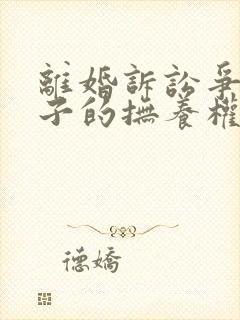 離婚訴訟爭
子的撫養權
德嬌